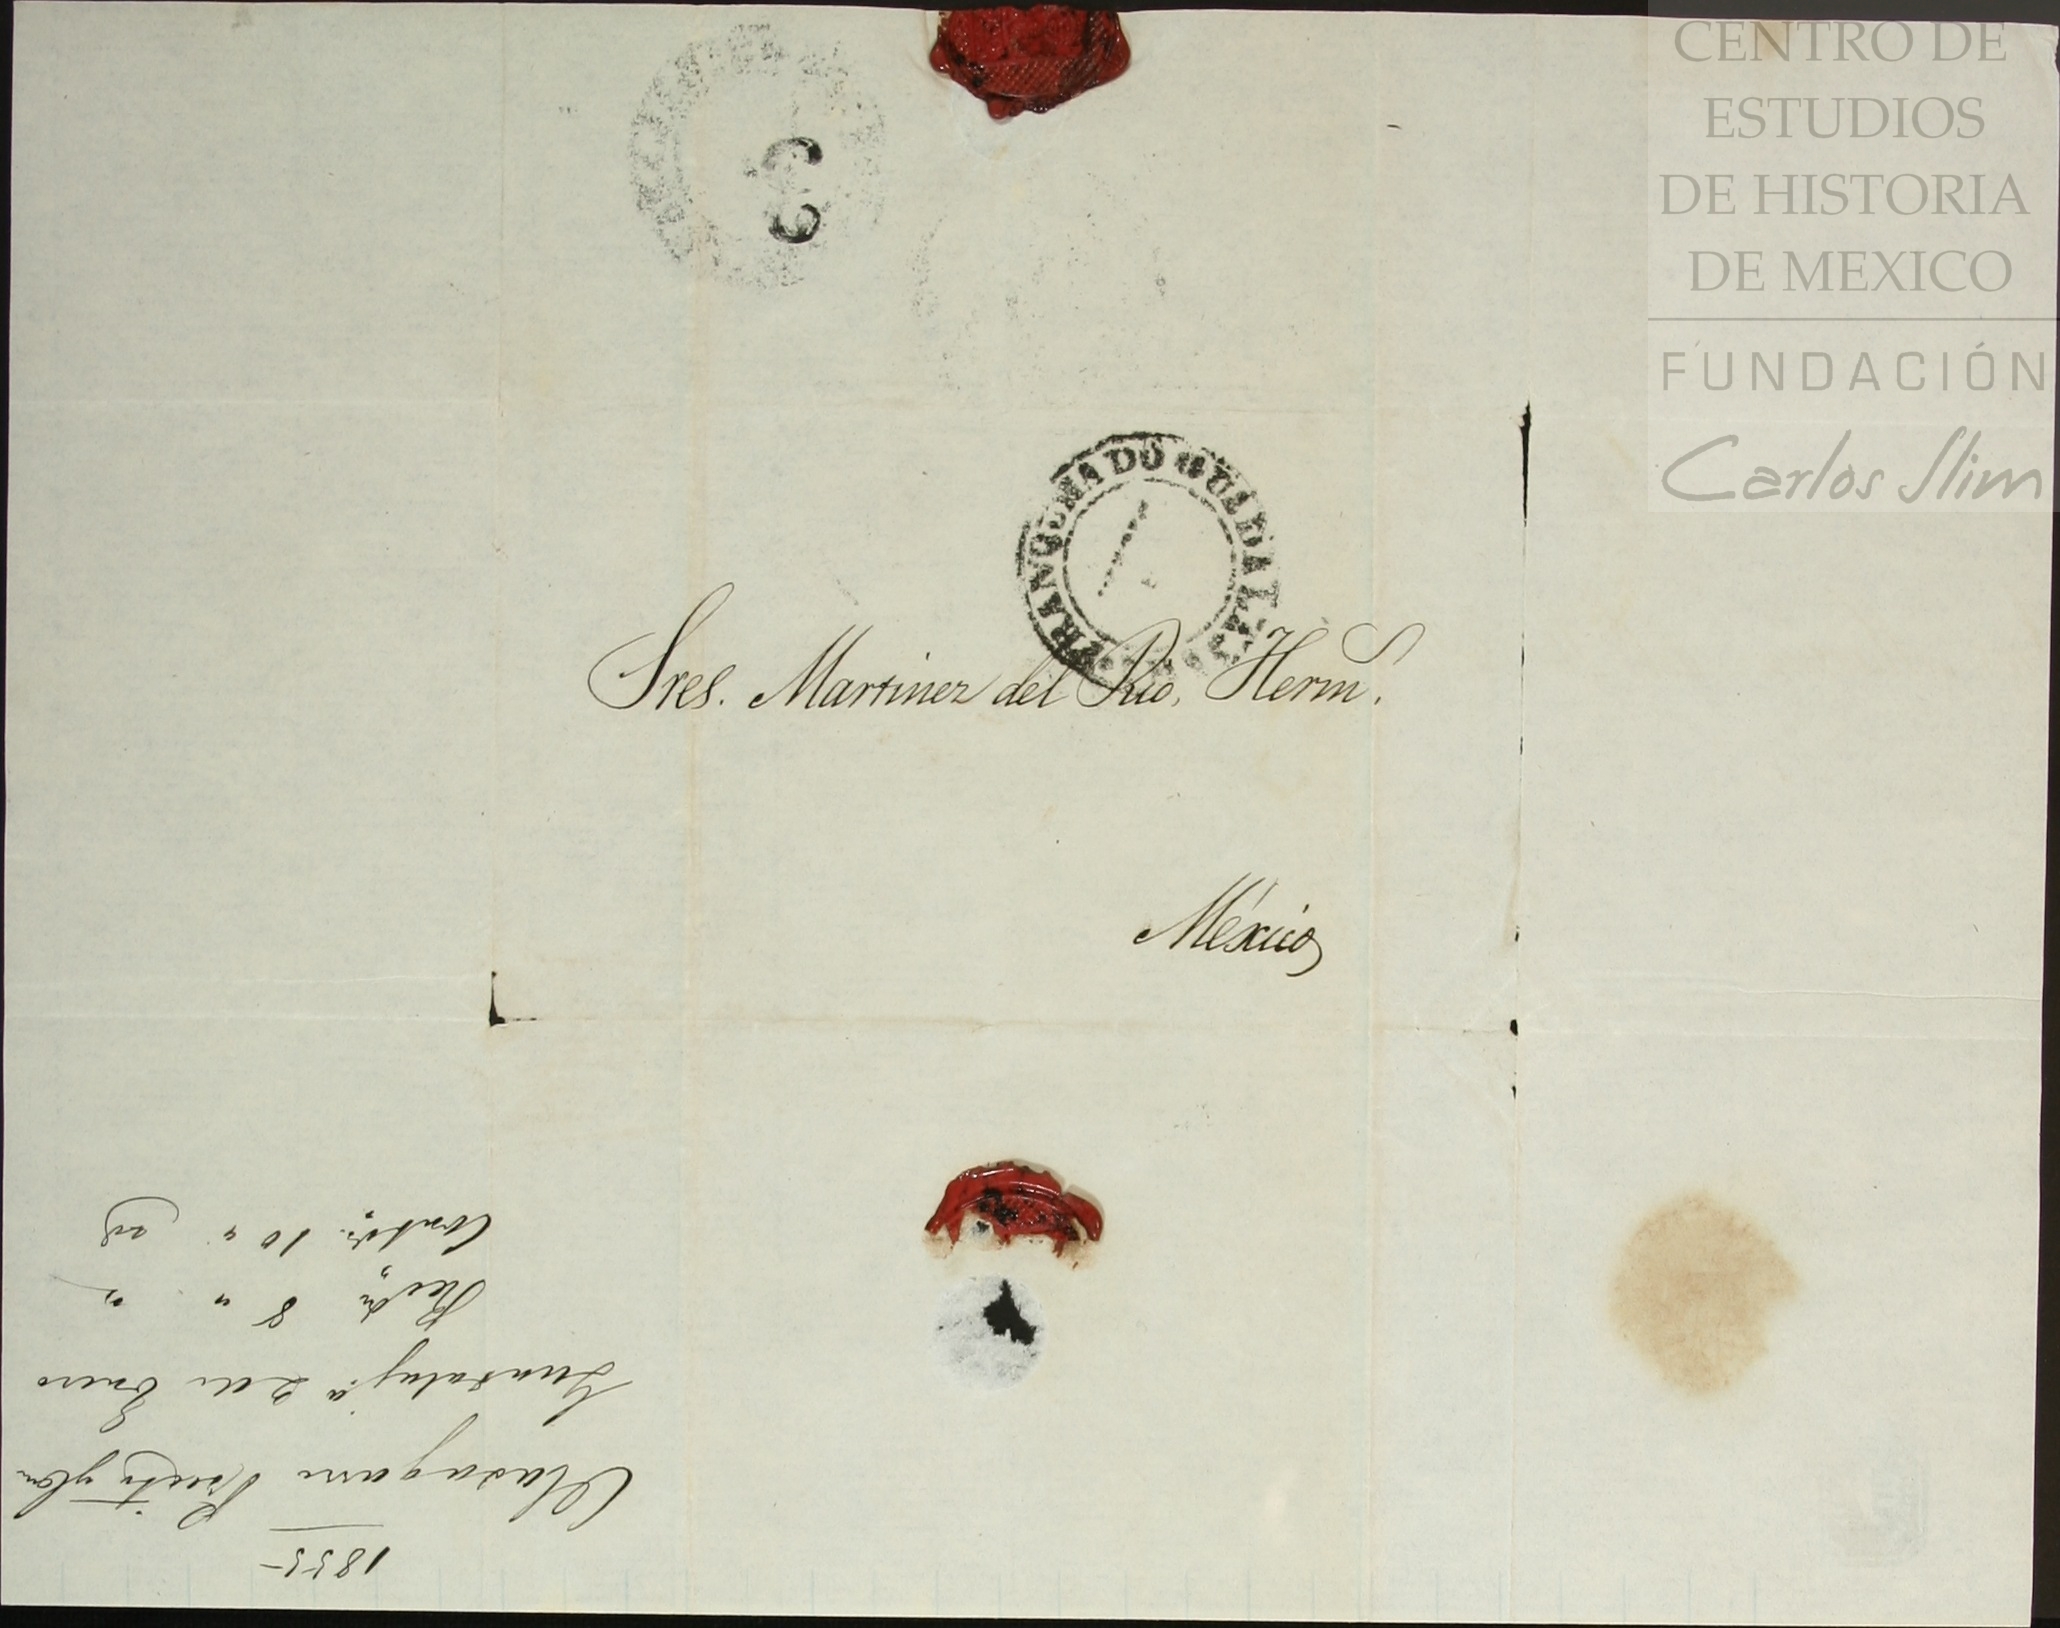 CENTRO DE
ESTUDIOS
DE HISTORIA
DE MEXICO
FUNDACIÓN
Carlos Slim
FRANQUEADO GUADALX.
Sres. Martinez del Rio, Herms.
México
1855
Olasagarre Prieto y Com
Guadalaja. 2 de Enero
8 " "
Contda. 10 "